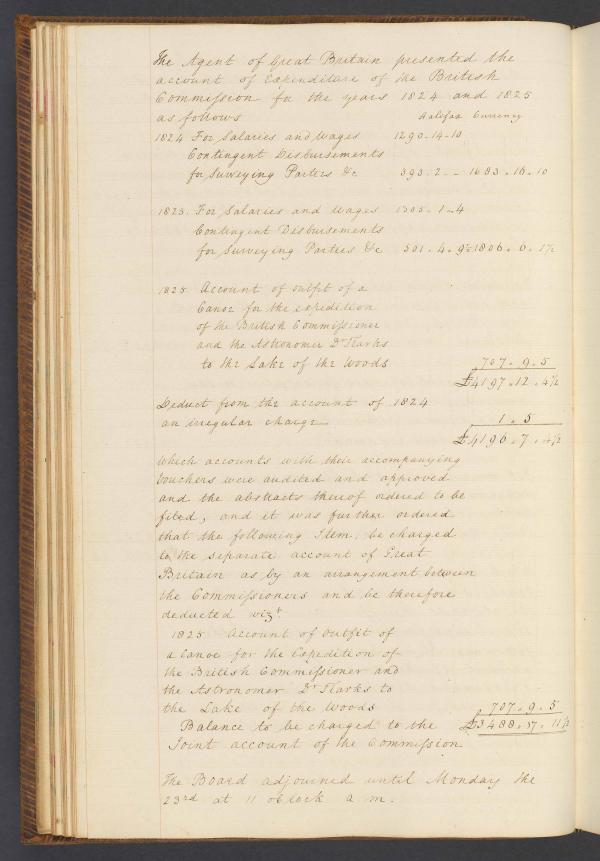 The Agent of Great Britain presented the
account of Expenditure of the British
Commission for the years 1824 and 1825
as follows Halifax Currency
1824 For Salaries and Wages 1290-14-10
Contingent Disbursements
for Surveying Parties &c 393.2-- 1683.16.10
1825 For Salaries and Wages 1305.1-4
Contingent Disbursements
for Surveying Parties &c 501.4.9½ 1806.6.1½
1825 Account of outfit of a
Canoe for the expedition
of the British Commissioner
and the Astronomer Dr Tiarks
to the Lake of the Woods 707.9.5
£4197.12.4½
Deduct from the account of 1824
an irregular charge 1.5
£4196.7.4½
which accounts with their accompanying
vouchers were audited and approved
and the abstracts thereof ordered to be
filed, and it was further ordered
that the following Item, be charged
to the separate account of Great
Britain as by an arrangement between
the Commissioners and be therefore
deducted vizt
1825 Account of Outfit of
a Canoe for the Expedition of
the British Commissioner and
the Astronomer Dr Tiarks to
the Lake of the Woods 707.9.5
Balance to be charged to the £3488.17.11½
Joint account of the Commission
The Board adjourned until Monday the
23rd at 11 oClock a m.